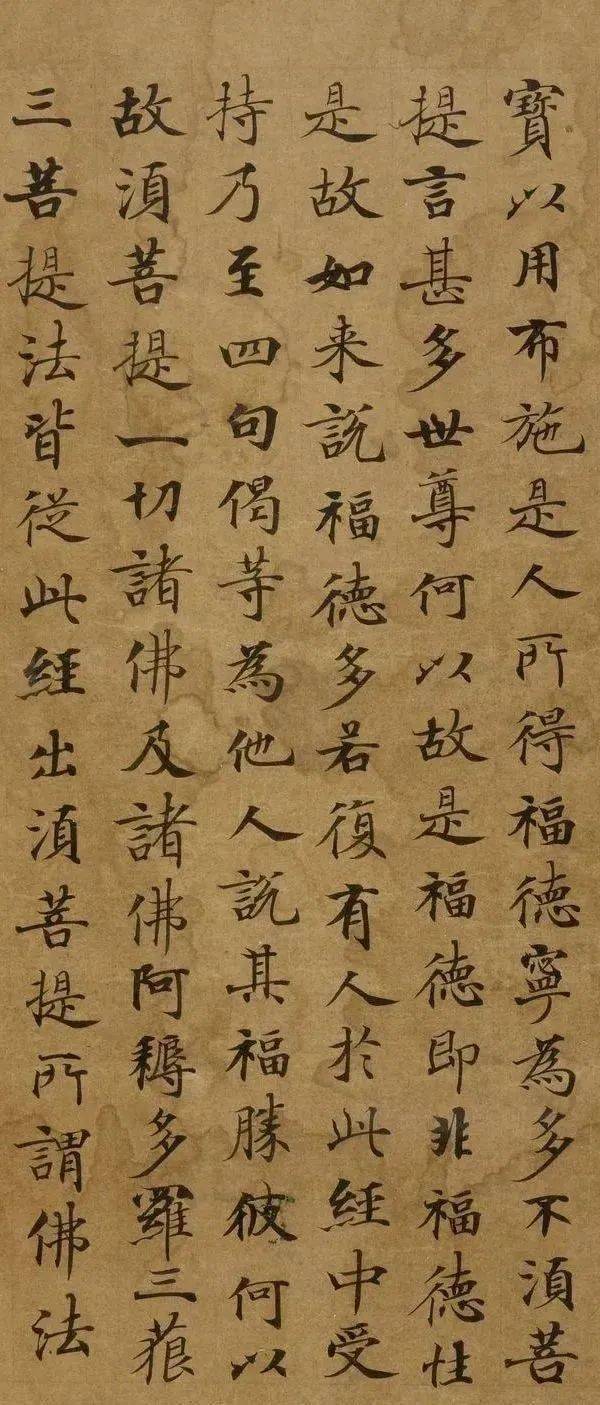 寶以用布施是人所得福德寧為多不湏菩
提言甚多世尊何以故是福德即非福德性
是故如来說福德多若復有人於此經中受
持乃至四句偈等為他人說其福勝彼何以
故湏菩提一切諸佛及諸佛阿耨多羅三藐
三菩提法皆從此經出湏菩提所謂佛法